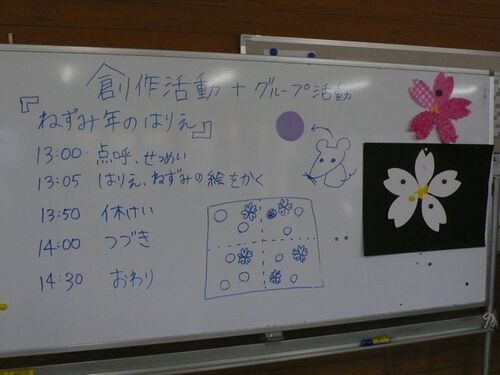 創作活動+グループ活動
『ねずみ年のはりえ』
13:00 点呼、せつめい
13:05 はりえ、ねずみの絵をかく
13:50 休けい
14:00 つづき
14:30 おわり